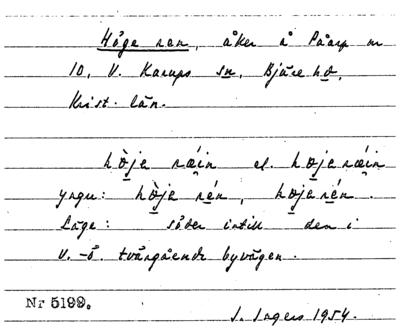 Höge ren, åker å Påarp nr
10, V. Karups sn, Bjäre hd,
Krist. län.
hö̀ja ræ̀in el. höjaræ̀in
yngre: hö̀ja rén, höjarén.
Läge: söder intill den i
V.-Ö. tvärgående byvägen.
Nr 5199.
I. Ingers 1954.